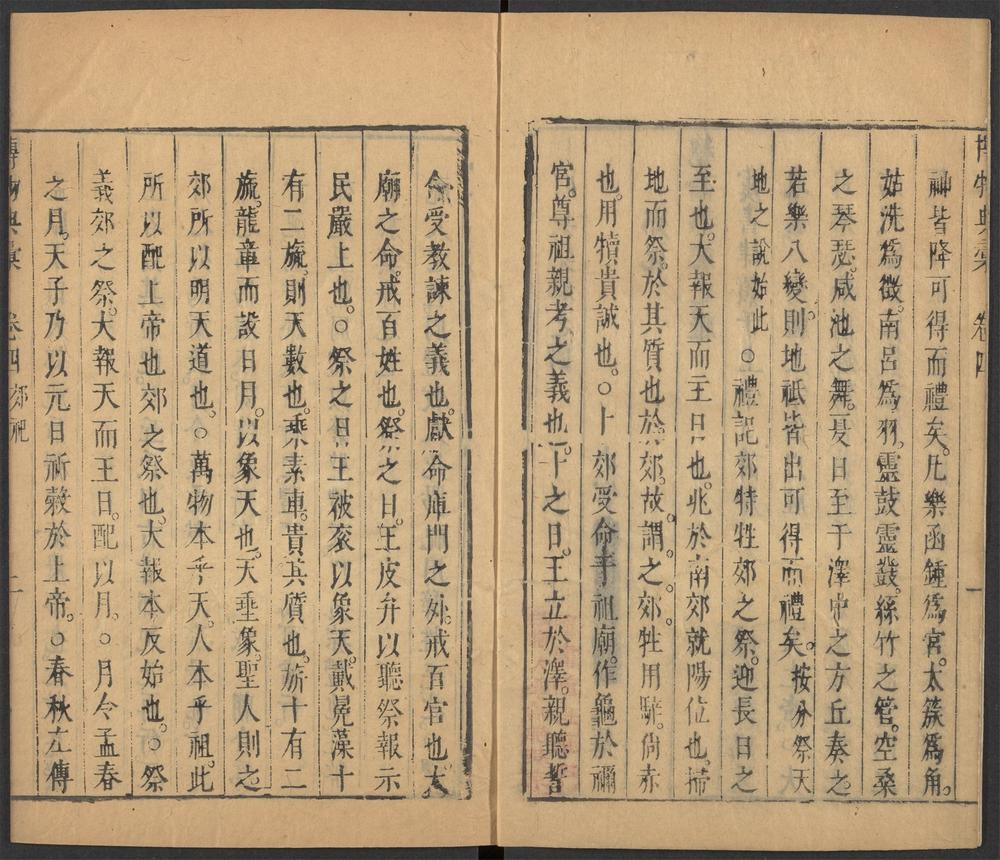 博物典彙 卷四 一
神皆降可得而禮矣。凡樂函鍾爲宮。太簇爲角。
姑洗爲徵。南呂爲羽。靈鼓靈鼗。絲竹之管。空桑
之琴瑟。咸池之舞。夏日至于澤中之方丘奏之
若樂八變。則地祇皆出可得而禮矣。按分祭天
地之說始此 ○禮記郊特牲郊之祭。迎長日之
至也。大報天而主日也。兆於南郊就陽位也。掃
地而祭。於其質也於郊。故謂之郊。牲用騂。尙赤
也。用犢。貴誠也。○卜郊受命于祖廟。作龜於禰
宮。尊祖親考之義也。卜之日。王立於澤。親聽誓
命受教諫之義也。獻命庫門之外。戒百官也。大
廟之命。戒百姓也。祭之日。王皮弁以聽祭報示
民嚴上也。○祭之日王被衮以象天。戴冕藻十
有二旒。則天數也。乘素車。貴其質也。旂十有二
旒。龍章而設日月。以象天也。天垂象。聖人則之
郊所以明天道也。○萬物本乎天。人本乎祖。此
所以配上帝也。郊之祭也。大報本反始也。○祭
義郊之祭。大報天而主日。配以月。○月令孟春
之月。天子乃以元日祈穀於上帝。○春秋左傳
博物典彙 卷四 郊祀 二